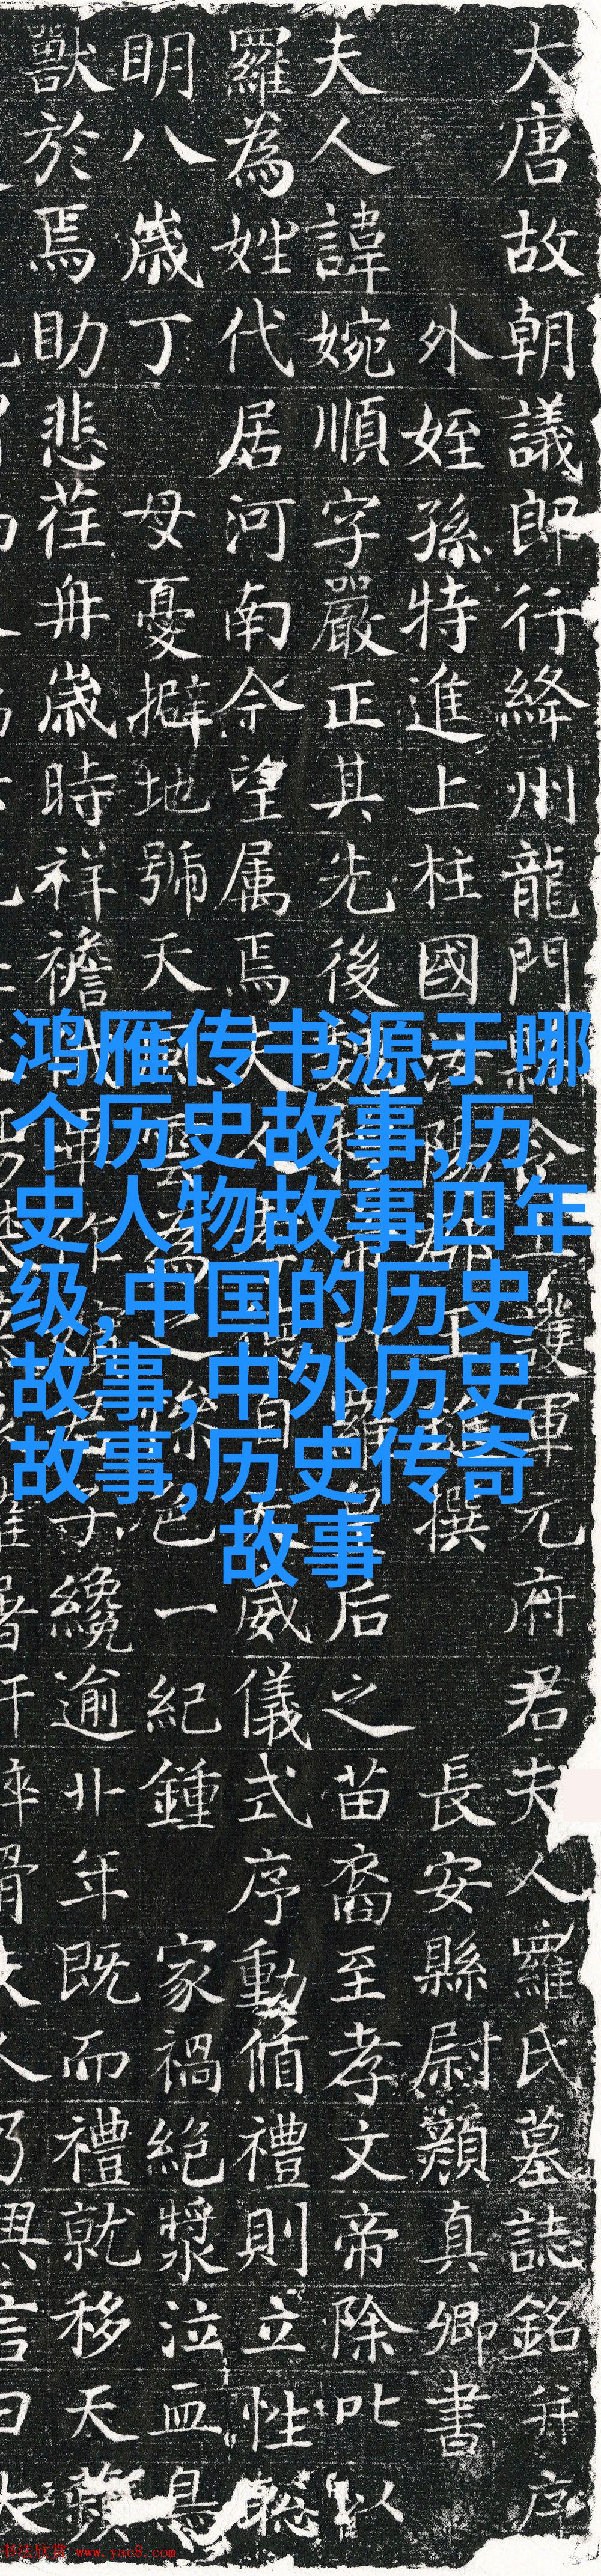 大唐故朝議郎行絳州龍門令護軍元府君夫人羅氏墓誌銘并序
外姪孫特進上柱國撰長安縣尉顏真卿書
夫人諱婉順字嚴正其先後后之苗裔至孝文帝除叱以
羅為姓代居河南今望属焉威儀式序動循禮則立性聰
明八歲丁母憂擗地號天一紀鍾家禍絕漿泣血鳥
獸於焉助悲荏苒歲時祥禫子纔逾卝年既而禮就移天蘋
鸿雁传书源于哪
个历史故事,历
史人物故事四年
级,中国的历史
故事,中外历史
故事,历史传奇
故事
书法欣赏 www.yac8.com